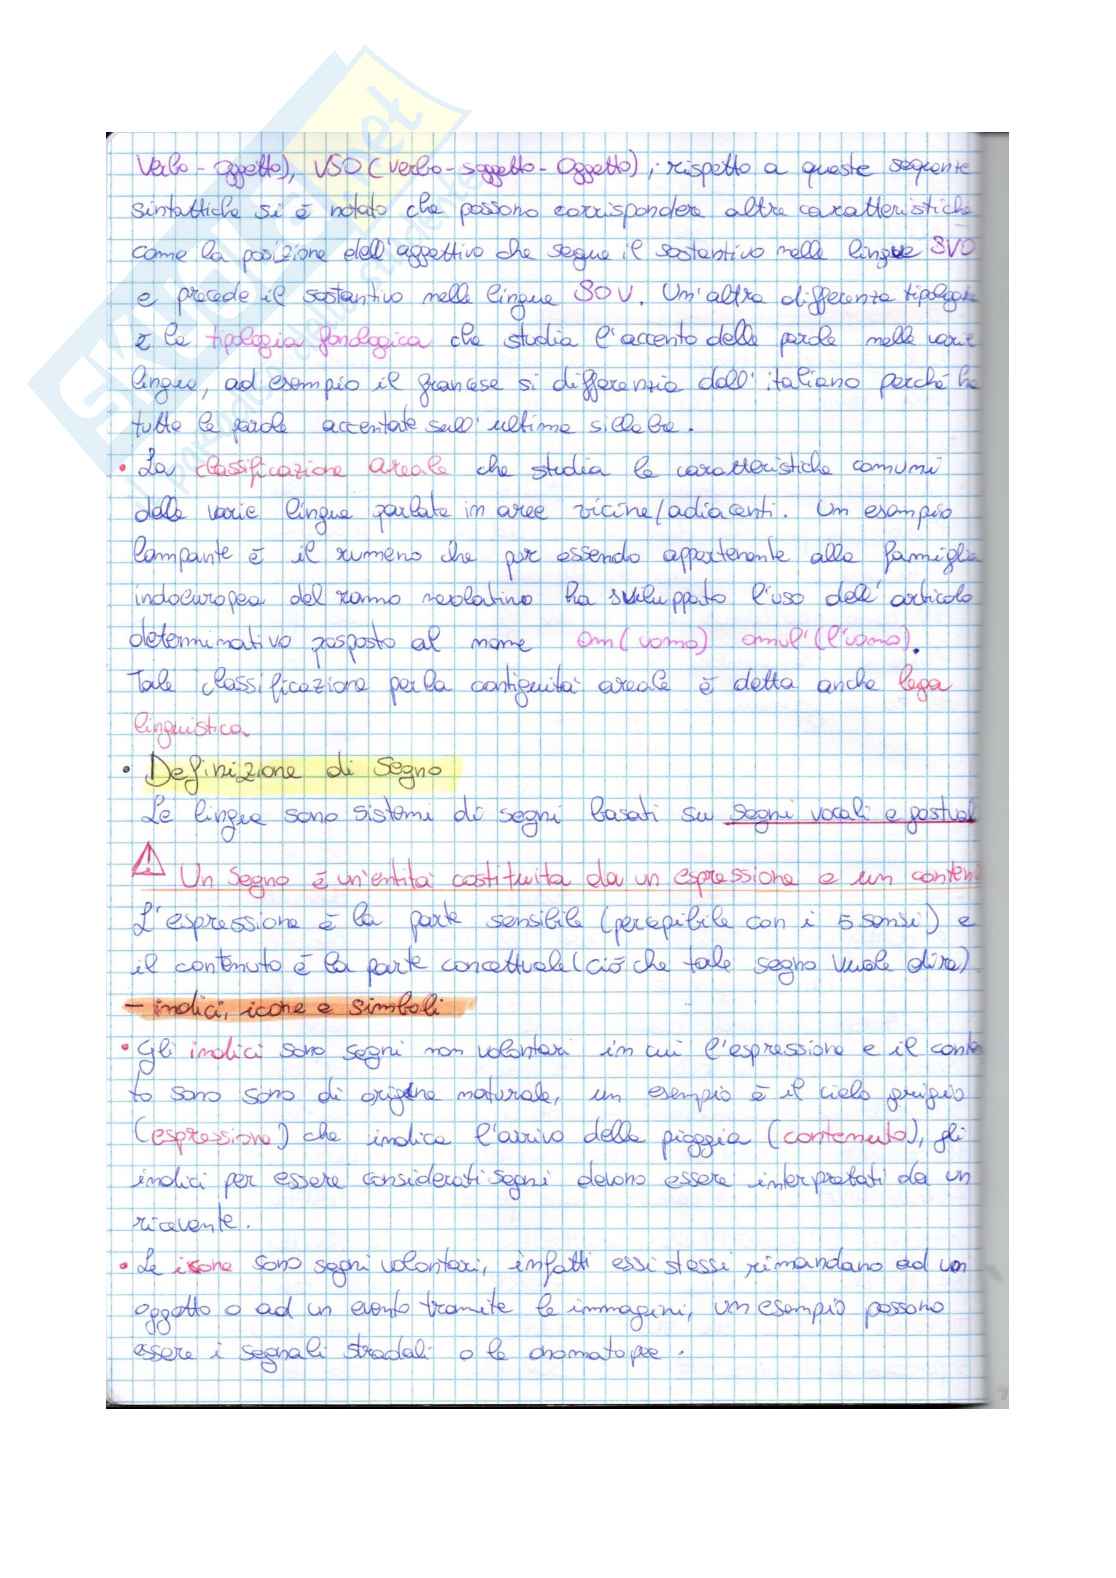 Verbo - Oggetto), VSO (verbo - soggetto - Oggetto); rispetto a queste sequenze
sintattiche si è notato che possono corrispondere altre caratteristiche
come la posizione dell'aggettivo che segue il sostantivo nelle lingue SVO
e precede il sostantivo nelle lingue SOV. Un'altra differenza tipologica
è la tipologia fonologica che studia l'accento delle parole nelle varie
lingue, ad esempio il francese si differenzia dall'italiano perché ha
tutte le parole accentate sull'ultima sillaba.
• La classificazione areale che studia le caratteristiche comuni
delle varie lingue parlate in aree vicine/adiacenti. Un esempio
lampante è il rumeno che pur essendo appartenente alla famiglia
indoeuropea del ramo neolatino ha sviluppato l'uso dell'articolo
determinativo posposto al nome om (uomo) omul' (l'uomo).
Tale classificazione per la contiguità areale è detta anche lega
linguistica
• Definizione di Segno
Le lingue sono sistemi di segni basati su segni vocali e gestual
Un segno è un'entità costituita da un espressione e un conten
L'espressione è la parte sensibile (percepibile con i 5 sensi) e
il contenuto è la parte concettuale (ciò che tale segno vuole dire)
- indici, icone e simboli
• Gli indici sono segni non volontari in cui l'espressione e il conte
to sono sono di origine naturale, un esempio è il cielo grigio
(espressione) che indica l'arrivo della pioggia (contenuto), gli
indici per essere considerati segni devono essere interpretati da un
ricevente.
• Le icone sono segni volontari, infatti essi stessi rimandano ad un
oggetto o ad un evento tramite le immagini, un esempio possono
essere i segnali stradali o le onomatopee.